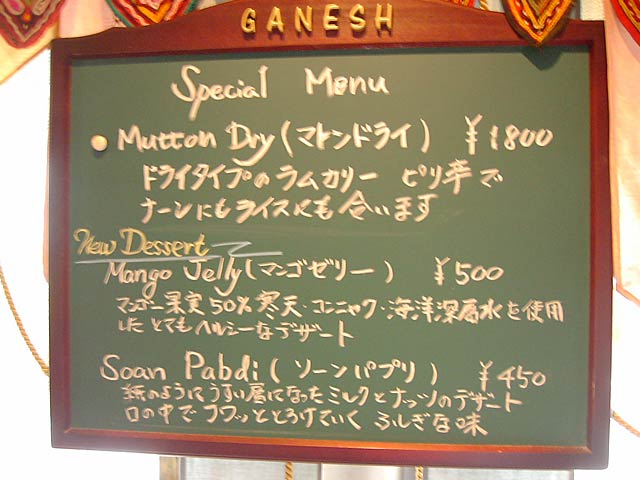 GANESH
Special Menu
Mutton Dry (マトンドライ) ¥1800
ドライタイプのラムカリー ピリ辛で
ナーンにもライスにも合います
New Dessert
Mango Jelly (マンゴゼリー) ¥500
マンゴー果実50%寒天・コンニャク・海洋深層水を使用
したとてもヘルシーなデザート
Soan Pabdi (ソーンパプリ) ¥450
紙のようにうすい層になったミルクとナッツのデザート
口の中でフワッととろけていく ふしぎな味